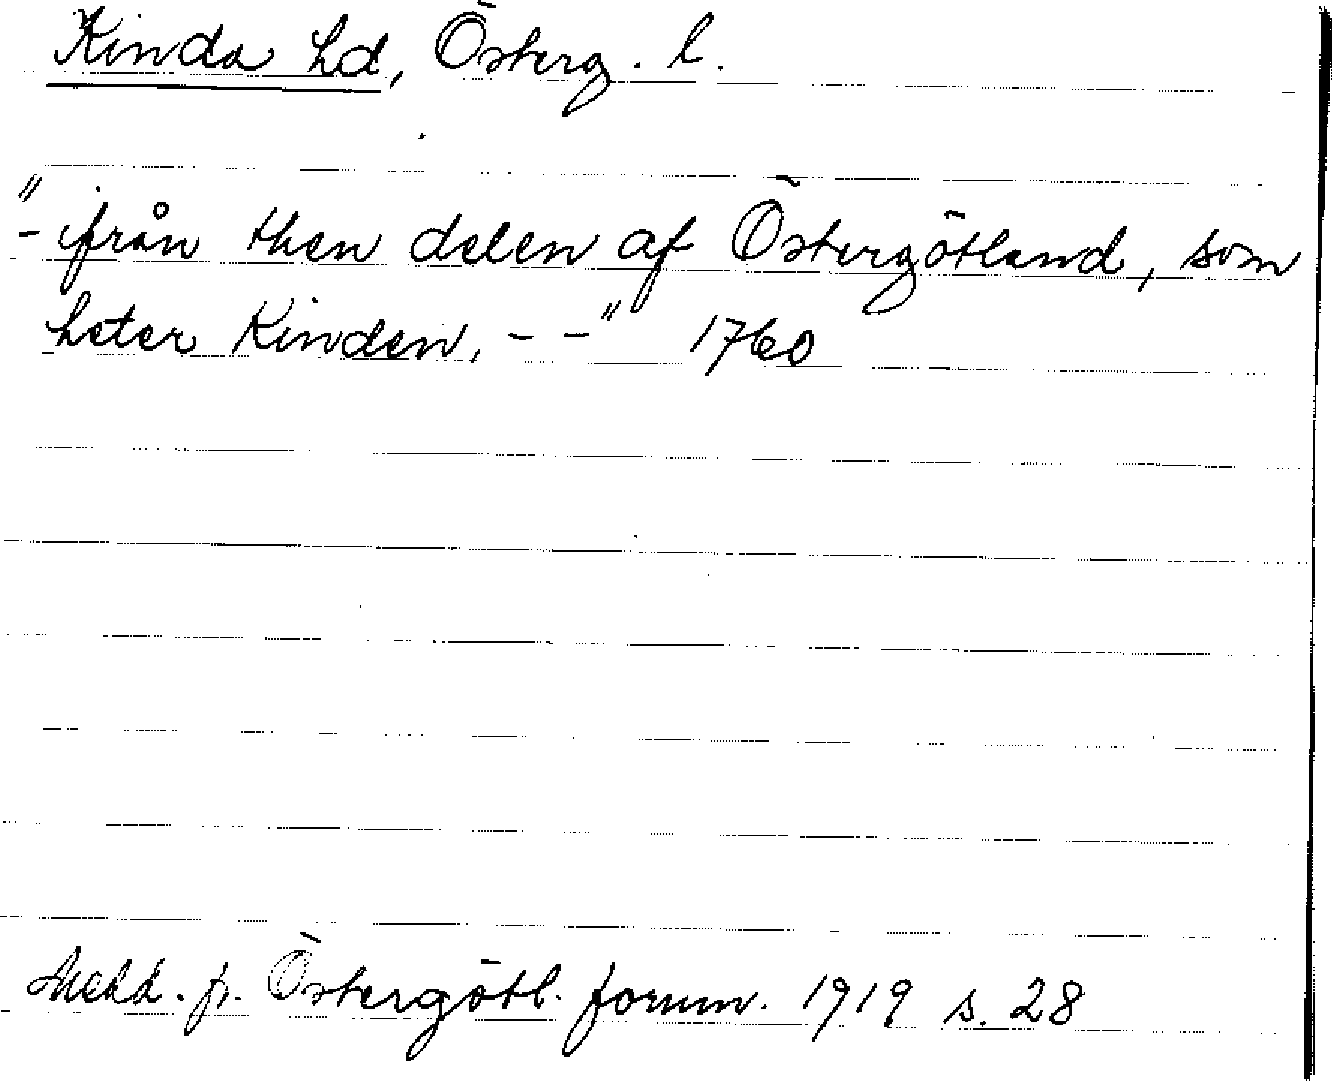 Kinda hd, Österg. l.
"- ifrån then delen af Östergötland, som
heter Kinden, - -" 1760
Medd. fr. Östergötl. fornm. 1919 s. 28